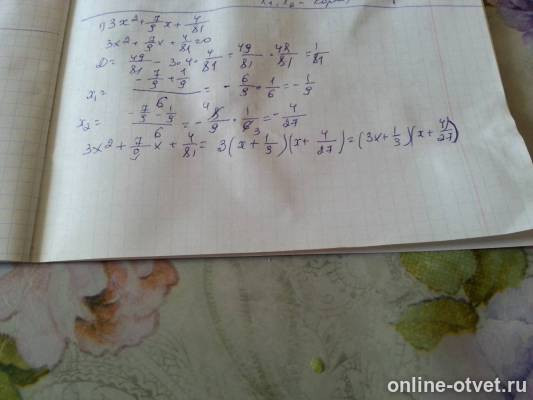 1) 3x² + 7/9 x + 4/81
3x² + 7/9 x + 4/81 = 0
D = 49/81 - 3·4·4/81 = 49/81 · 48/81 = 1/81
x₁ = (-7/9 + 1/9)/6 = -6/9 · 1/6 = -1/9
x₂ = (-7/9 - 1/9)/6 = -8/9 · 1/6 = -4/27
3x² + 7/9 x + 4/81 = 3(x + 1/3)(x + 4/27) = (3x + 1/3)(x + 4/27)
online-otvet.ru